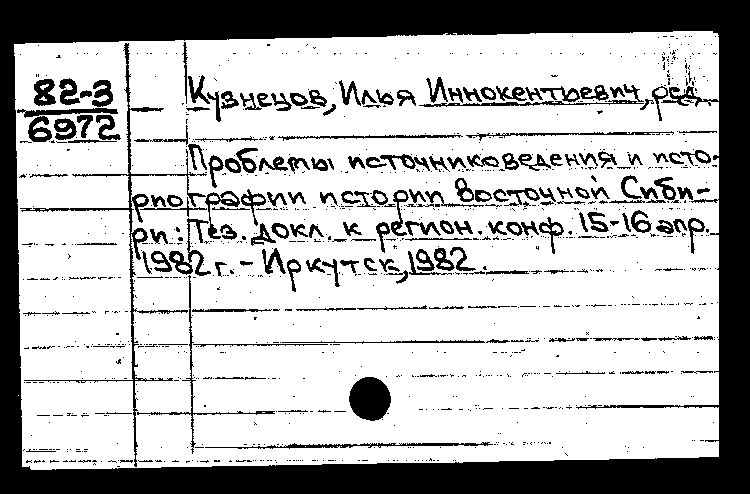 82-3
6972
Кузнецов, Илья Иннокентьевич, ред.
Проблемы источниковедения и исто-
риографии истории Восточной Сиби-
ри: Тез. докл. к регион. конф. 15-16 апр.
1982 г. - Иркутск, 1982.